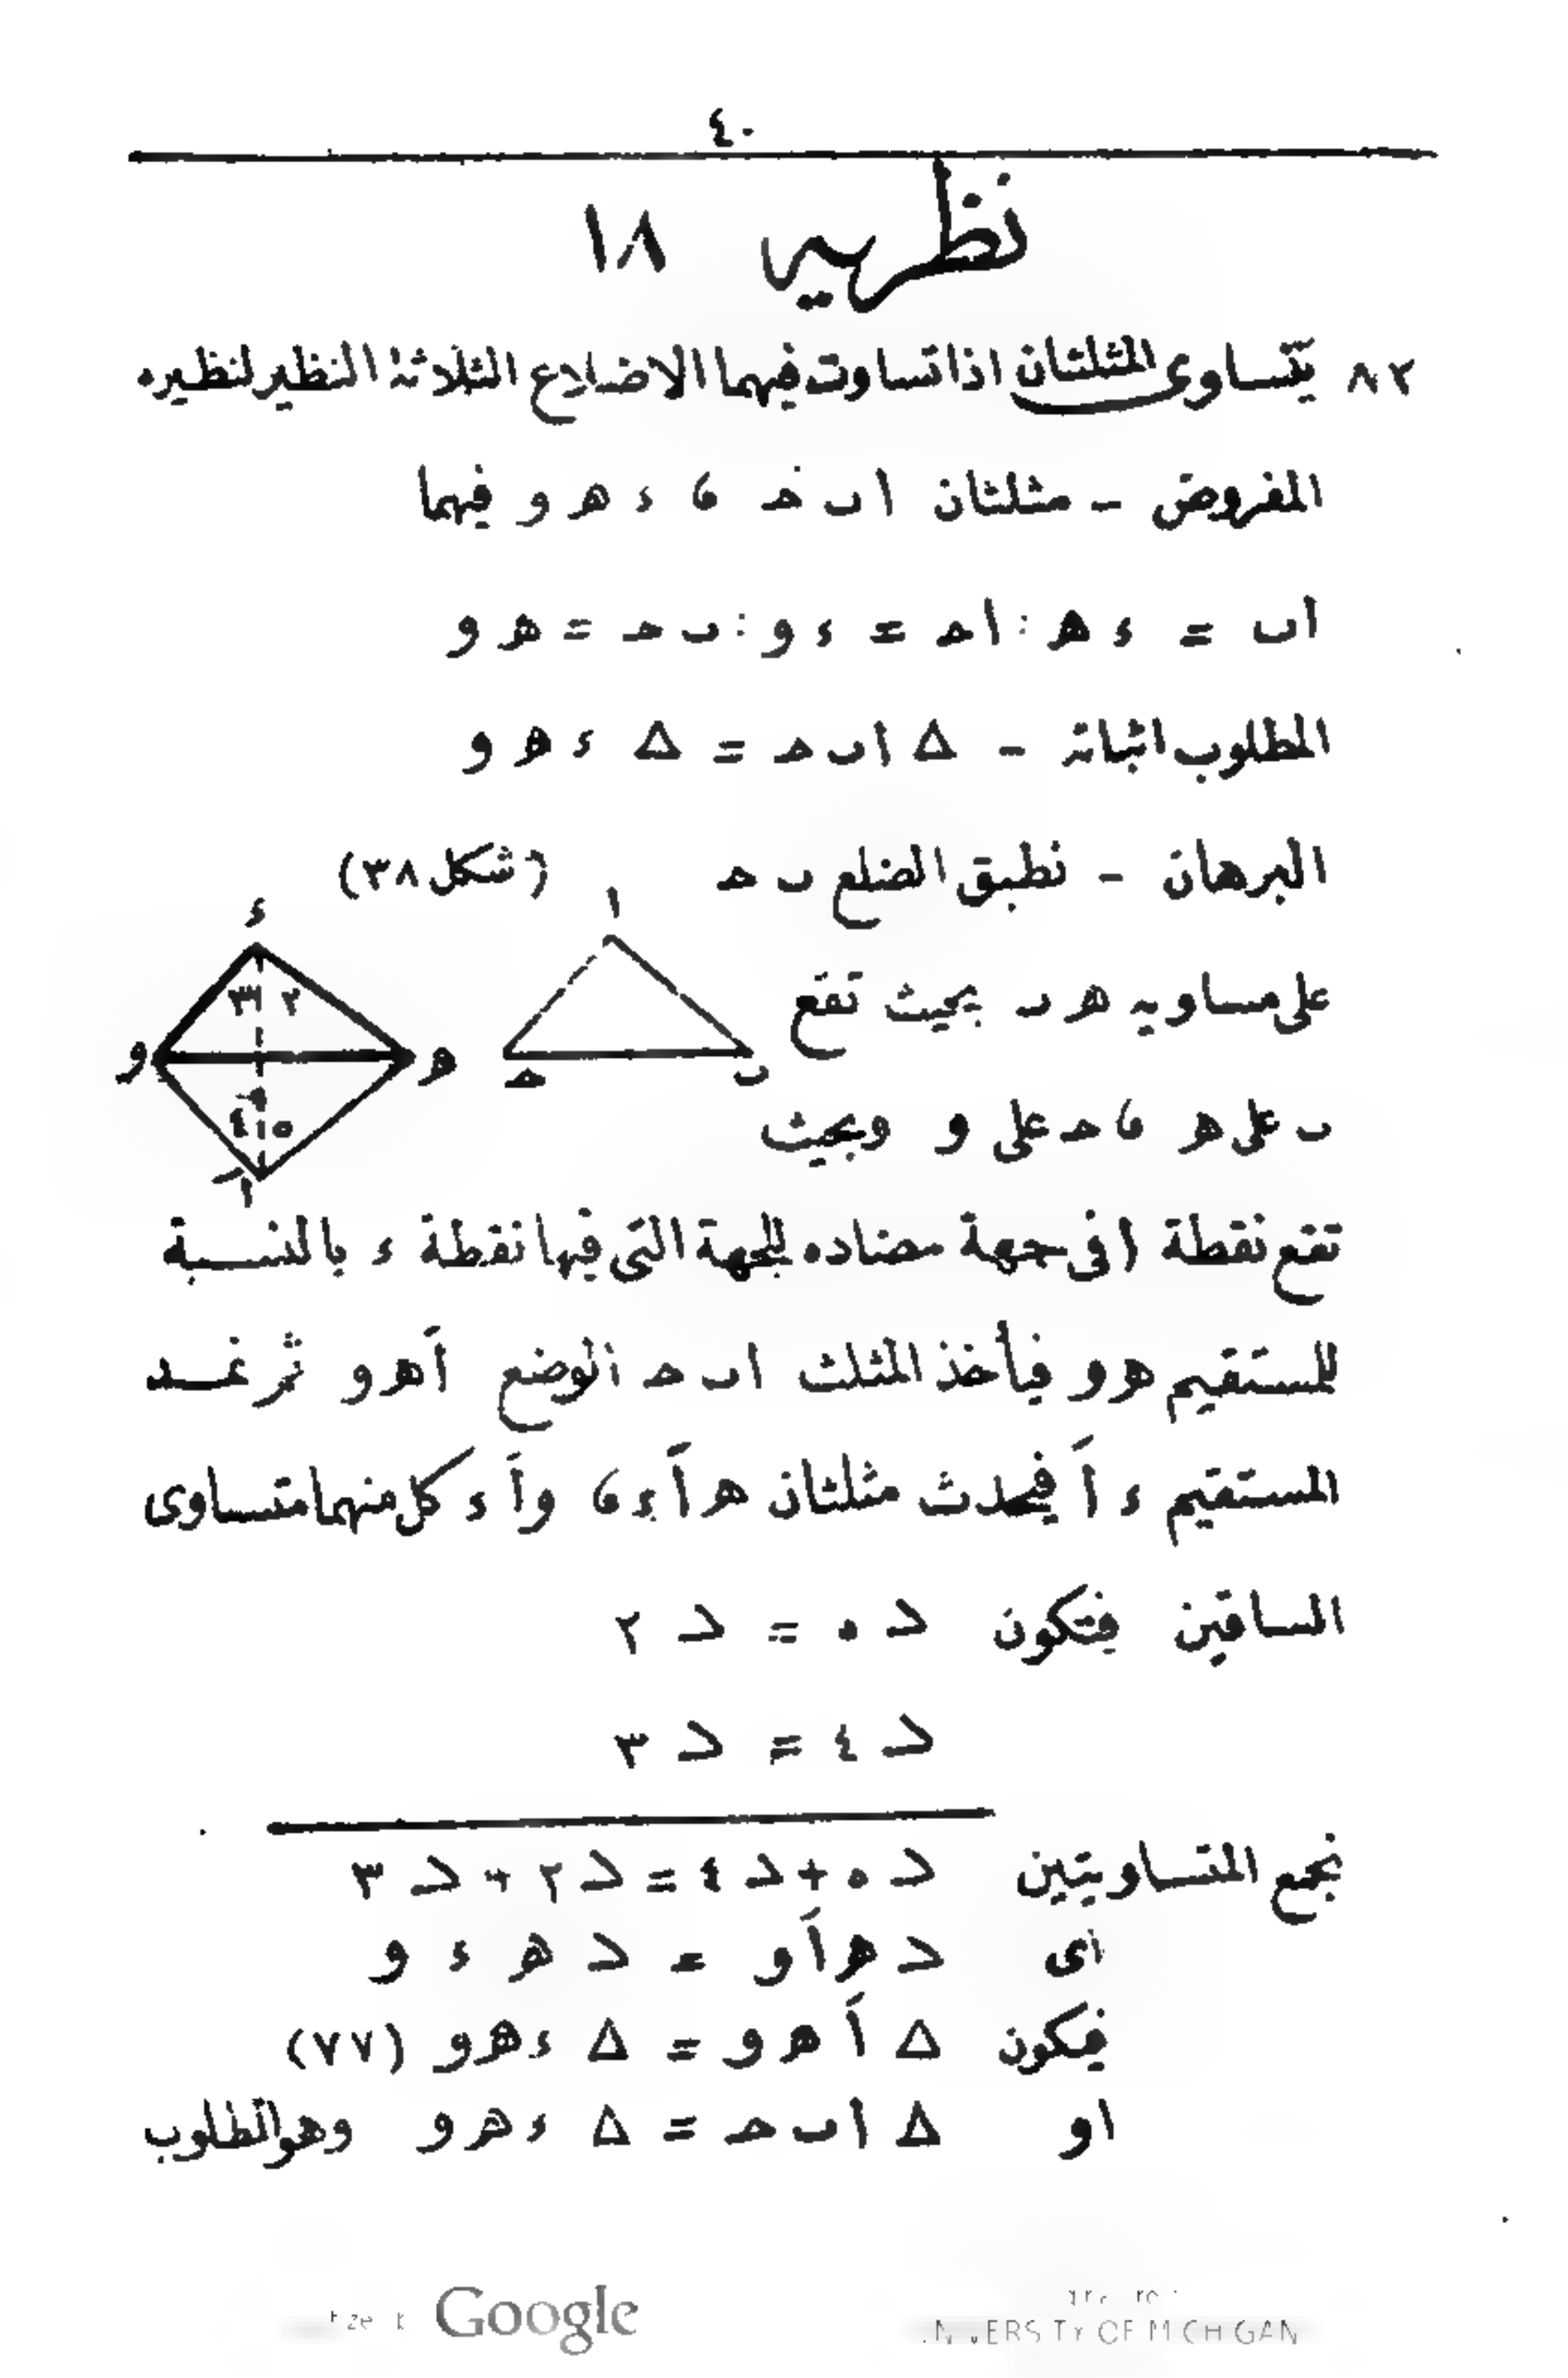 ٤٠
نظريه ١٨
٨٢ يتساوى المثلثان اذا تساوت فيهما الاضلاع الثلاثة النظير لنظيره
المفروض - مثلثان ا ب ح ، ء ه و فيهما
ا ب = ء ه : ا ح = ء و : ب ح = ه و
المطلوب اثباته - △ ا ب ح = △ ء ه و
البرهان - نطبق الضلع ب ح (شكل ٣٨)
على مساويه ه د بحيث تقع
ب على ه ، ح على و وبحيث
ء
٣ ٢
و ه
٤ ٥
اَ
ا
ح ب
تقع نقطة ا فى جهة مضاده للجهة التى فيها نقطة ء بالنسبة
للمستقيم ه و فيأخذ المثلث ا ب ح الوضع اَ ه و ثم نمد
المستقيم ء اَ فيحدث مثلثان ه اَ ء ، و اَ ء كل منهما متساوى
الساقين فتكون > ٥ = > ٢
> ٤ = > ٣
نجمع المتساويتين > ٥ + > ٤ = > ٢ + > ٣
أى > ه اَ و = > ه ء و
فيكون △ اَ ه و = △ ء ه و (٧٧)
او △ ا ب ح = △ ء ه و وهو المطلوب
Google
UNIVERSITY OF MICHIGAN